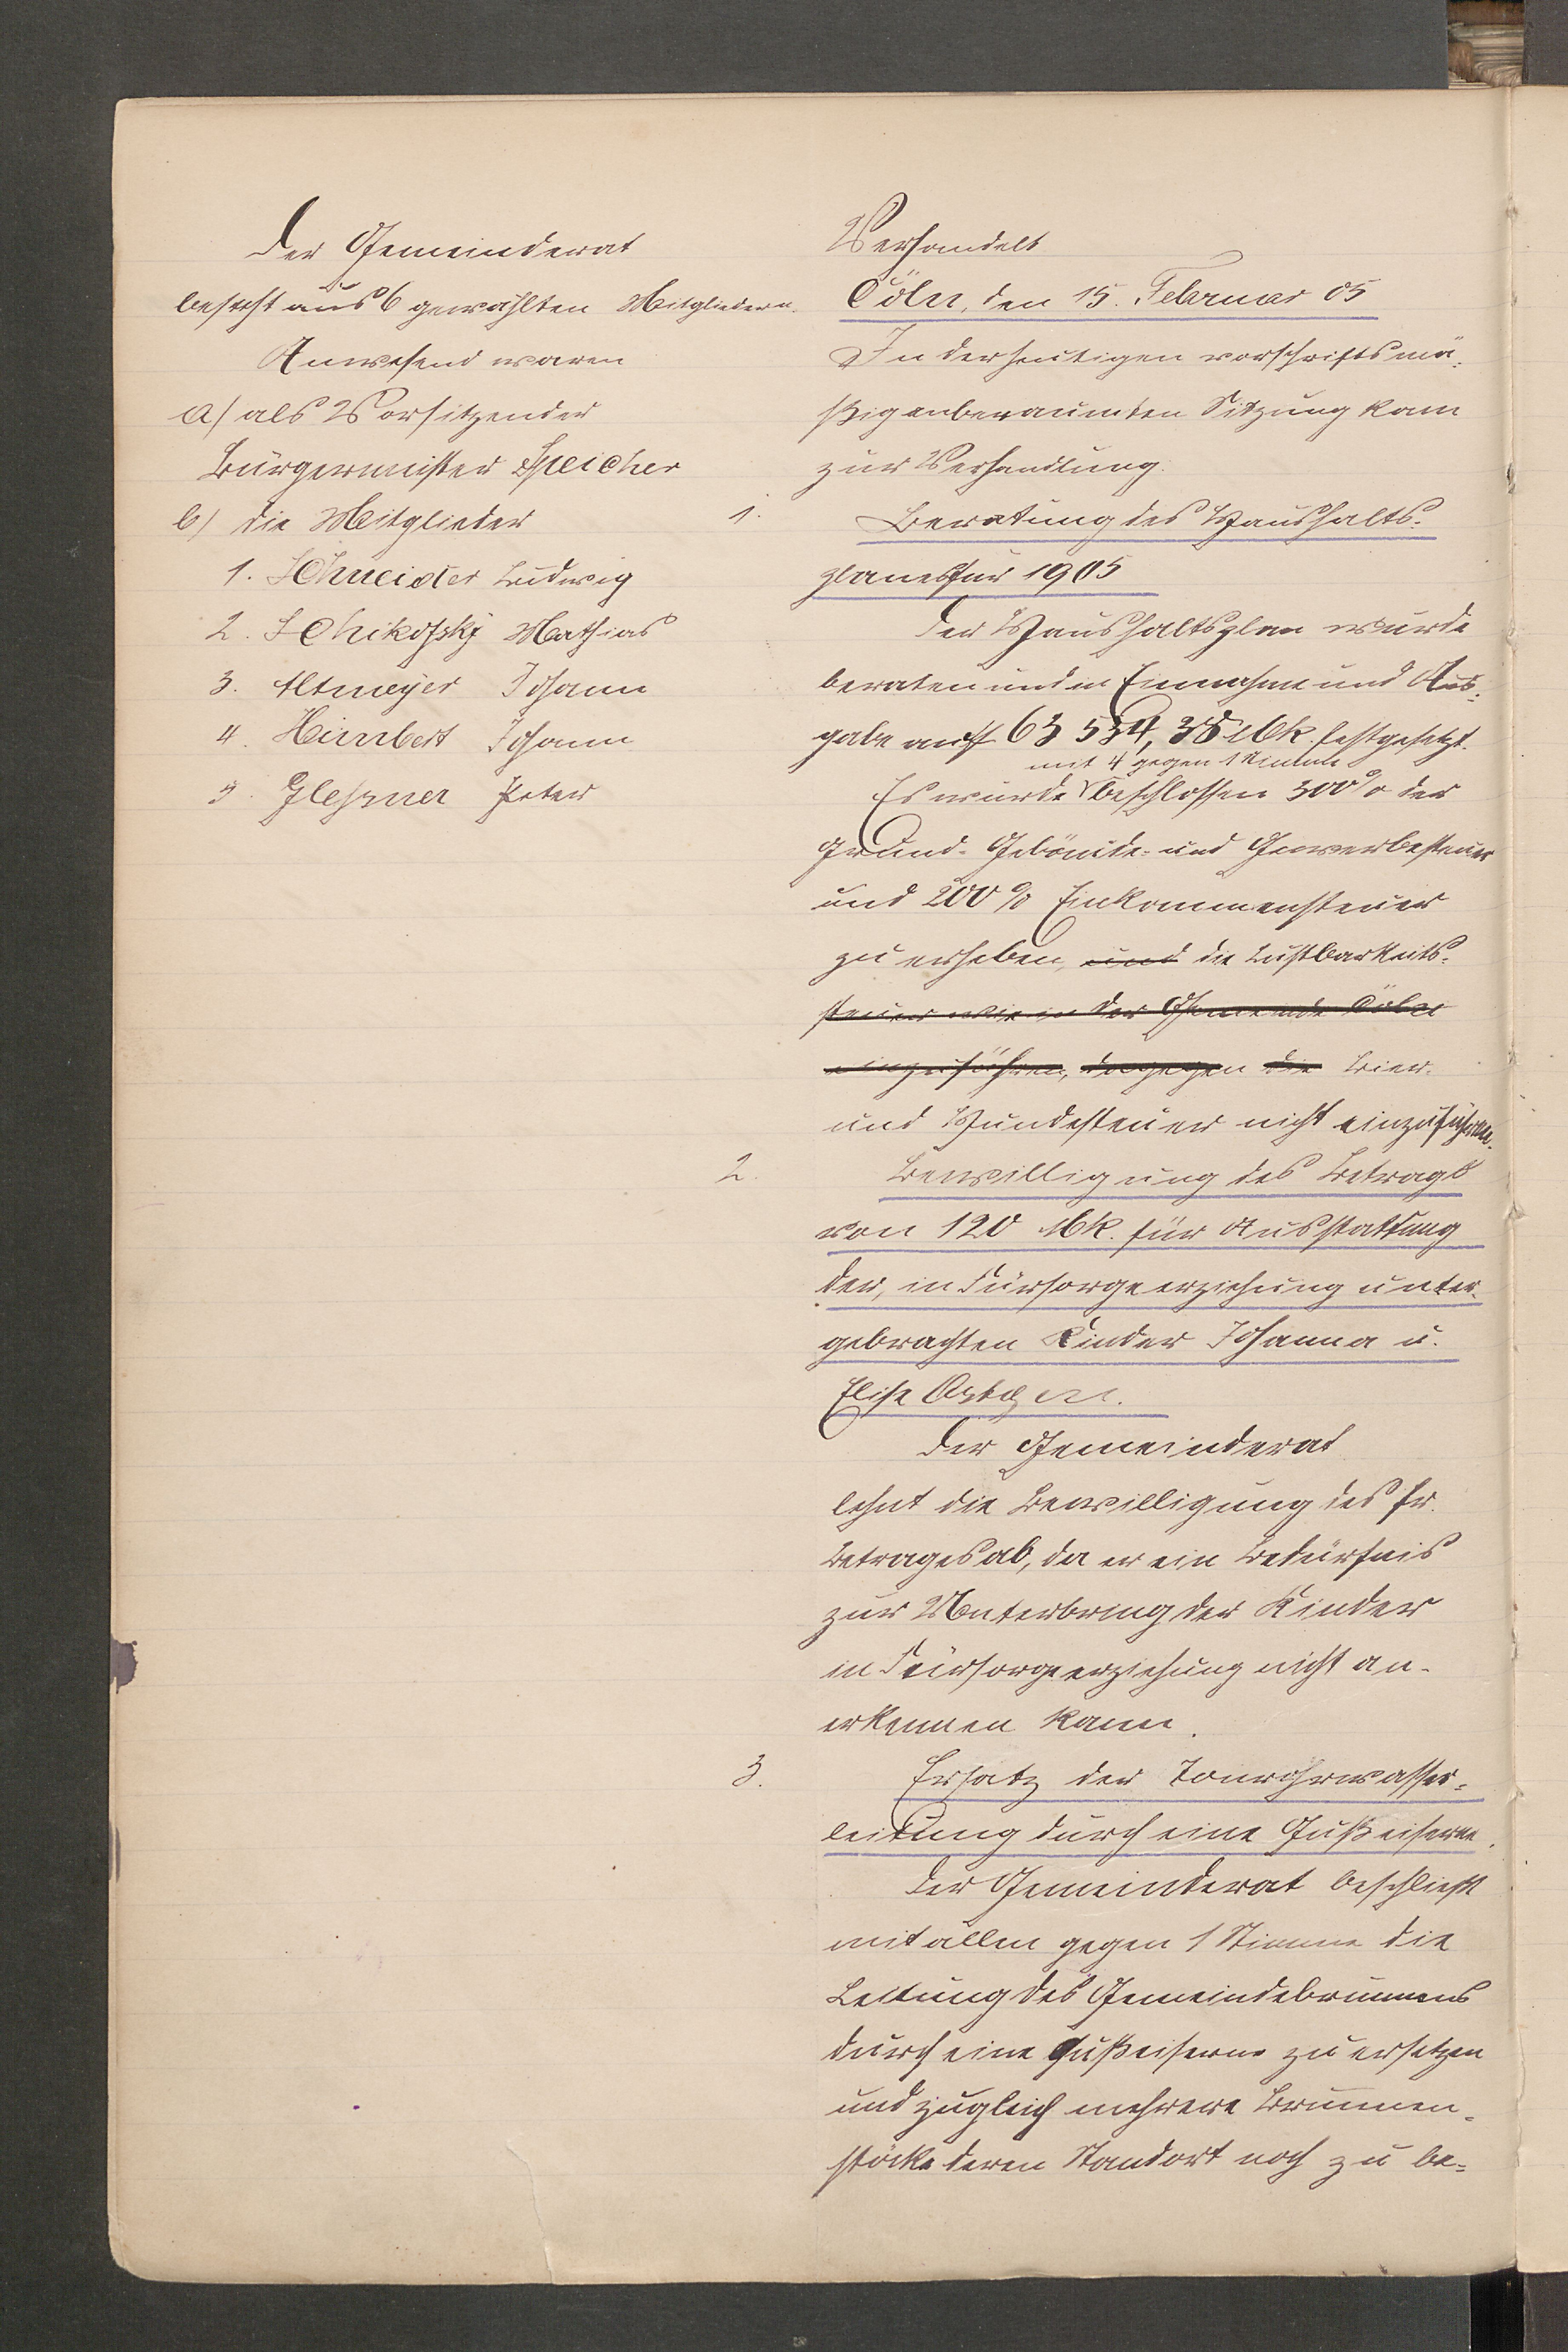 Der Gemeinderat
besteht aus 6 gewählten Mitgliedern.
Anwesend waren
a) als Vorsitzender
Bürgermeister Speicher
b) die Mitglieder
1. Schneider Ludwig
2. Schikofsky Mathias
3. Altmeyer Johann
4. Himbert Johann
5. Glessner Peter
Verhandelt
Cöln, den 15. Februar 05
In der heutigen vorschriftsmä-
ßig anberaumten Sitzung kam
zur Verhandlung:
1. Beratung des Haushalts-
planes für 1905
Der Haushaltsplan wurde
beraten und in Einnahme und Aus-
gabe auf 63 534,38 Mk. festgesetzt.
mit 4 gegen 1 Stimme
Es wurde beschlossen 300% der
Grund- Gebäude- und Gewerbesteuer
und 200% Einkommensteuer
zu erheben, und die Lustbarkeits-
steuer wie in der Gemeinde Cöln
einzuführen, dagegen die Bier-
und Hundesteuer nicht einzuführen.
2. Bewilligung des Betrags
von 120 Mk. für Ausstattung
der, in Fürsorgeerziehung unter-
gebrachten Kinder Johanna u.
Elise
Der Gemeinderat
lehnt die Bewilligung des fr.
Betrages ab, da er ein Bedürfnis
zur Unterbring der Kinder
in Fürsorgeerziehung nicht an-
erkennen kann.
3. Ersatz der Tonrohrwasser-
leitung durch eine Gußeiserne.
Der Gemeinderat beschließt
mit allen gegen 1 Stimme die
Leitung des Gemeindebrunnens
durch eine Gußeiserne zu ersetzen
und zugleich mehrere Brunnen-
stöcke deren Standort noch zu be-